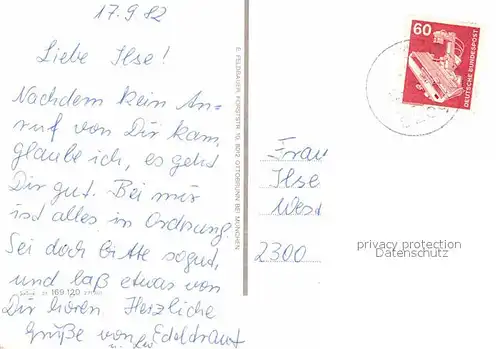 17.9.82
Liebe Ilse!
Nachdem kein An-
ruf von Dir kam,
glaube ich, es geht
Dir gut. Bei mir
ist alles in Ordnung.
Sei doch bitte so gut,
und laß etwas von
Dir hören Herzliche
Grüße von Edeltraut
169.120
E. FELDBAUER, FORSTSTR. 10, 8012 OTTOBRUNN BEI MÜNCHEN
60
DEUTSCHE BUNDESPOST
Frau
Ilse
West
2300
privacy protection
Datenschutz